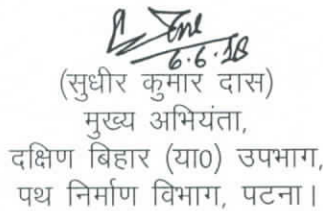 6.6.18
(सुधीर कुमार दास)
मुख्य अभियंता,
दक्षिण बिहार (या0) उपभाग,
पथ निर्माण विभाग, पटना।